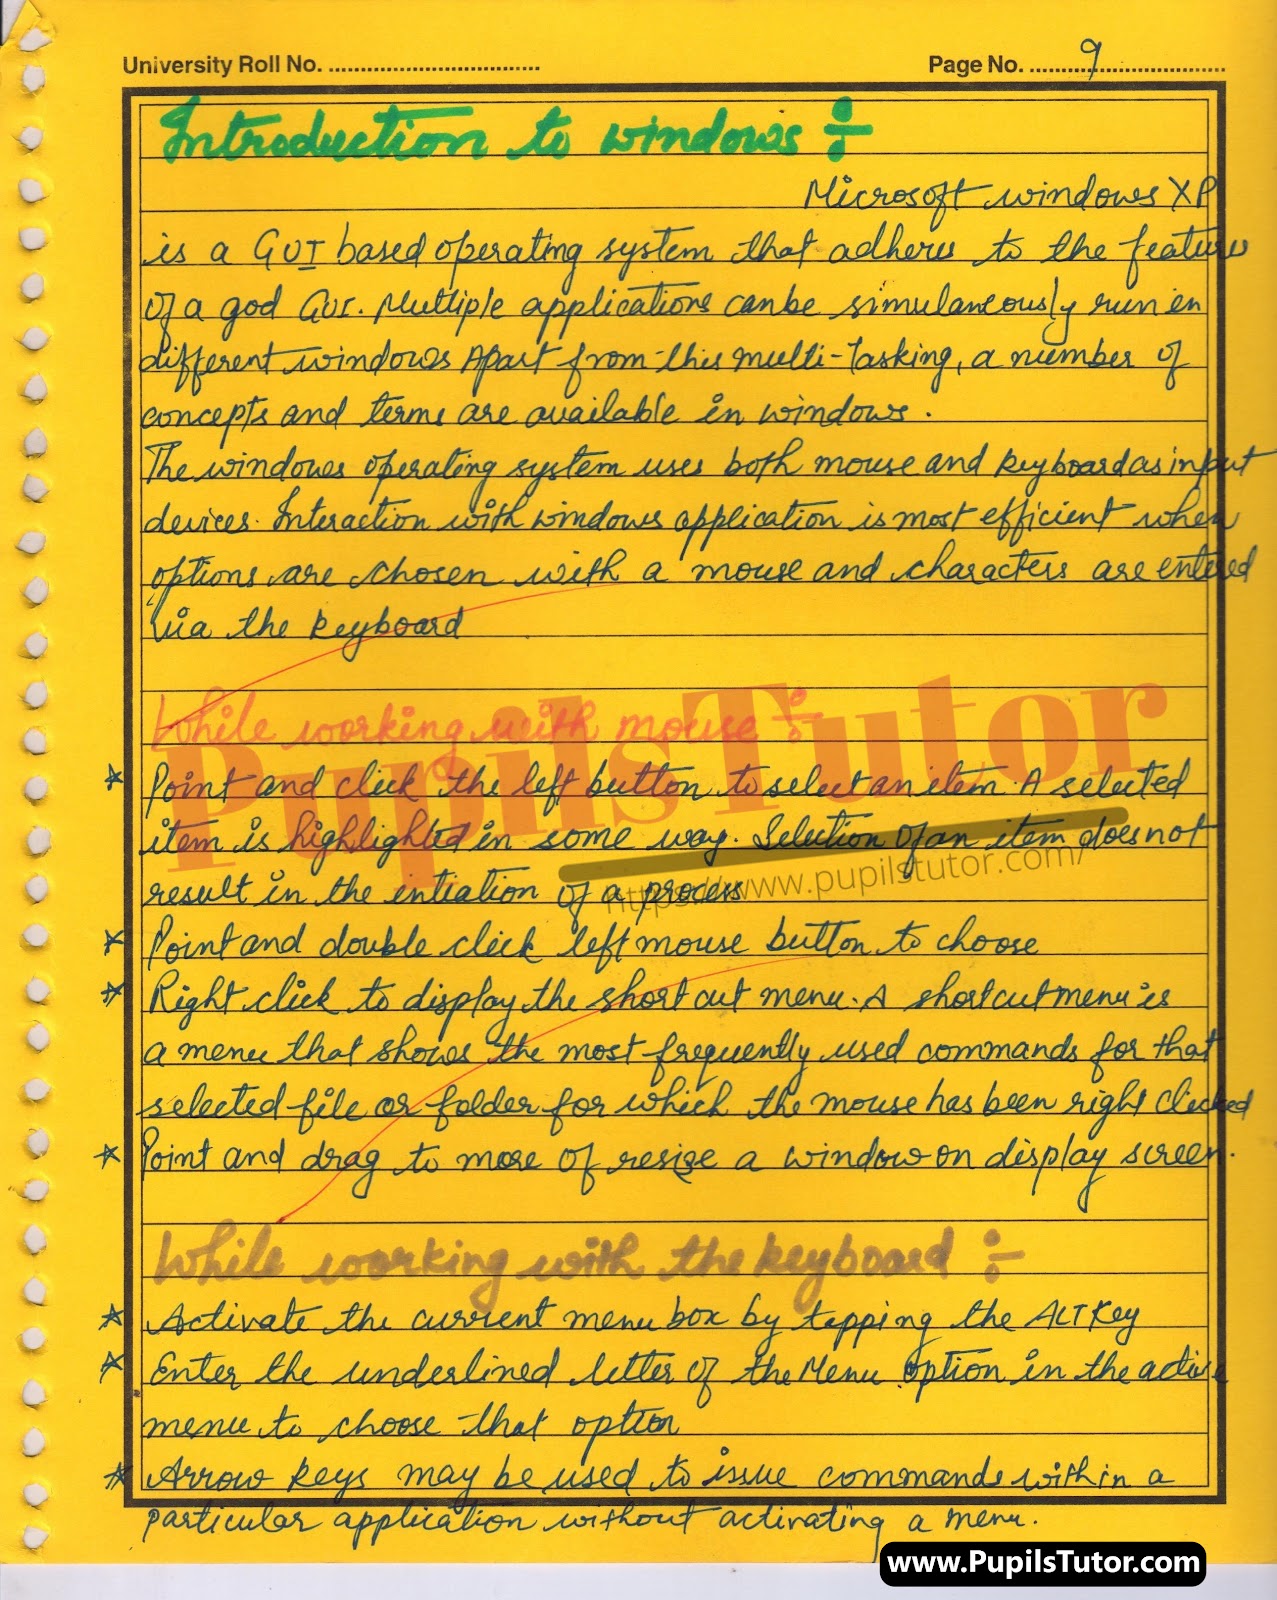 University Roll No. ................................. Page No. ..........9....................
Introduction to windows ÷
Microsoft windows XP
is a GUI based operating system that adheres to the feature
of a god GUI. Multiple applications canbe simulaneously run in
different windows Apart from this multi-Tasking, a number of
concepts and terms are available in windows.
The windows operating system uses both mouse and keyboard as input
devices. Interaction with windows application is most efficient when
options are chosen with a mouse and characters are entered
via the keyboard
While working with mouse ÷
* Point and click the left button to select an item. A selected
item is highlighted in some way. Selection of an item does not
result in the intiation of a process
* Point and double click left mouse button to choose
* Right click to display the short cut menu. A shortcut menu is
a menu that shows the most frequently used commands for that
selected file or folder for which the mouse has been right clicked
* Point and drag to more of resize a window on display screen.
While working with the keyboard ÷
* Activate the current menu box by tapping the ALT Key
* Enter the underlined letter of the Menu option in the active
menu to choose that option
* Arrow keys may be used to issue commands within a
particular application without activating a menu.
PupilsTutor
https://www.pupilstutor.com/
www.PupilsTutor.com